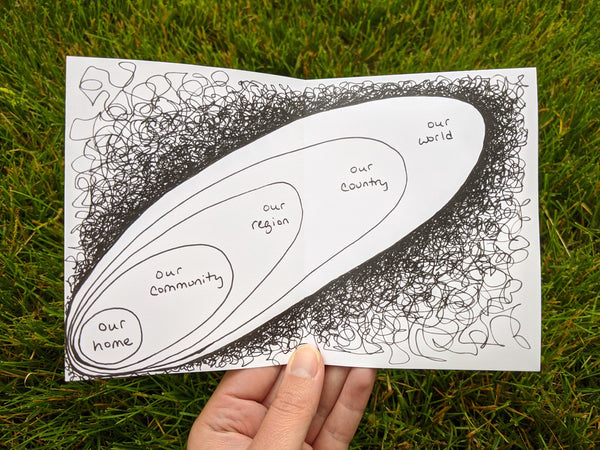 our
world
our
country
our
region
our
community
our
home